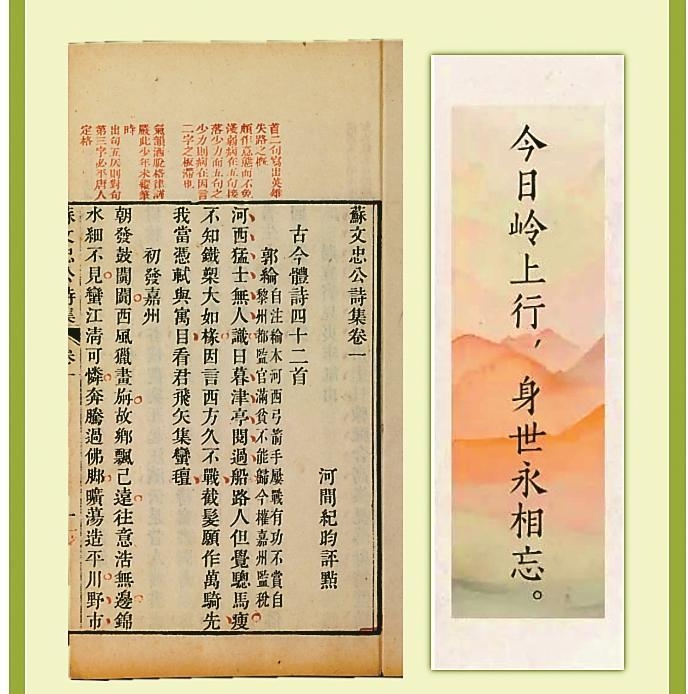 首二句寫出英雄
失路之慨
頗作意態而不免
淺弱病在五句接
落少力而五句之
少力則病在因言
二字之板滯也
氣韻灑脫格律謹
嚴此少年未縱筆
時
出句五仄則對句
第三字必平唐人
定格
蘇文忠公詩集卷一
河間紀昀評點
古今體詩四十二首
郭綸 自注綸本河西弓箭手屢戰有功不賞自
黎州都監官滿貧不能歸今權嘉州監稅
河西猛士無人識日暮津亭閱過船路人但覺驄馬瘦
不知鐵槊大如椽因言西方久不戰截髮願作萬騎先
我當憑軾與寓目看君飛矢集蠻氊
初發嘉州
朝發鼓闐闐西風獵畫旃故鄉飄已遠往意浩無邊錦
水細不見蠻江清可憐奔騰過佛腳曠蕩造平川野市
蘇文忠公詩集 卷一
今日岭上行，身世永相忘。